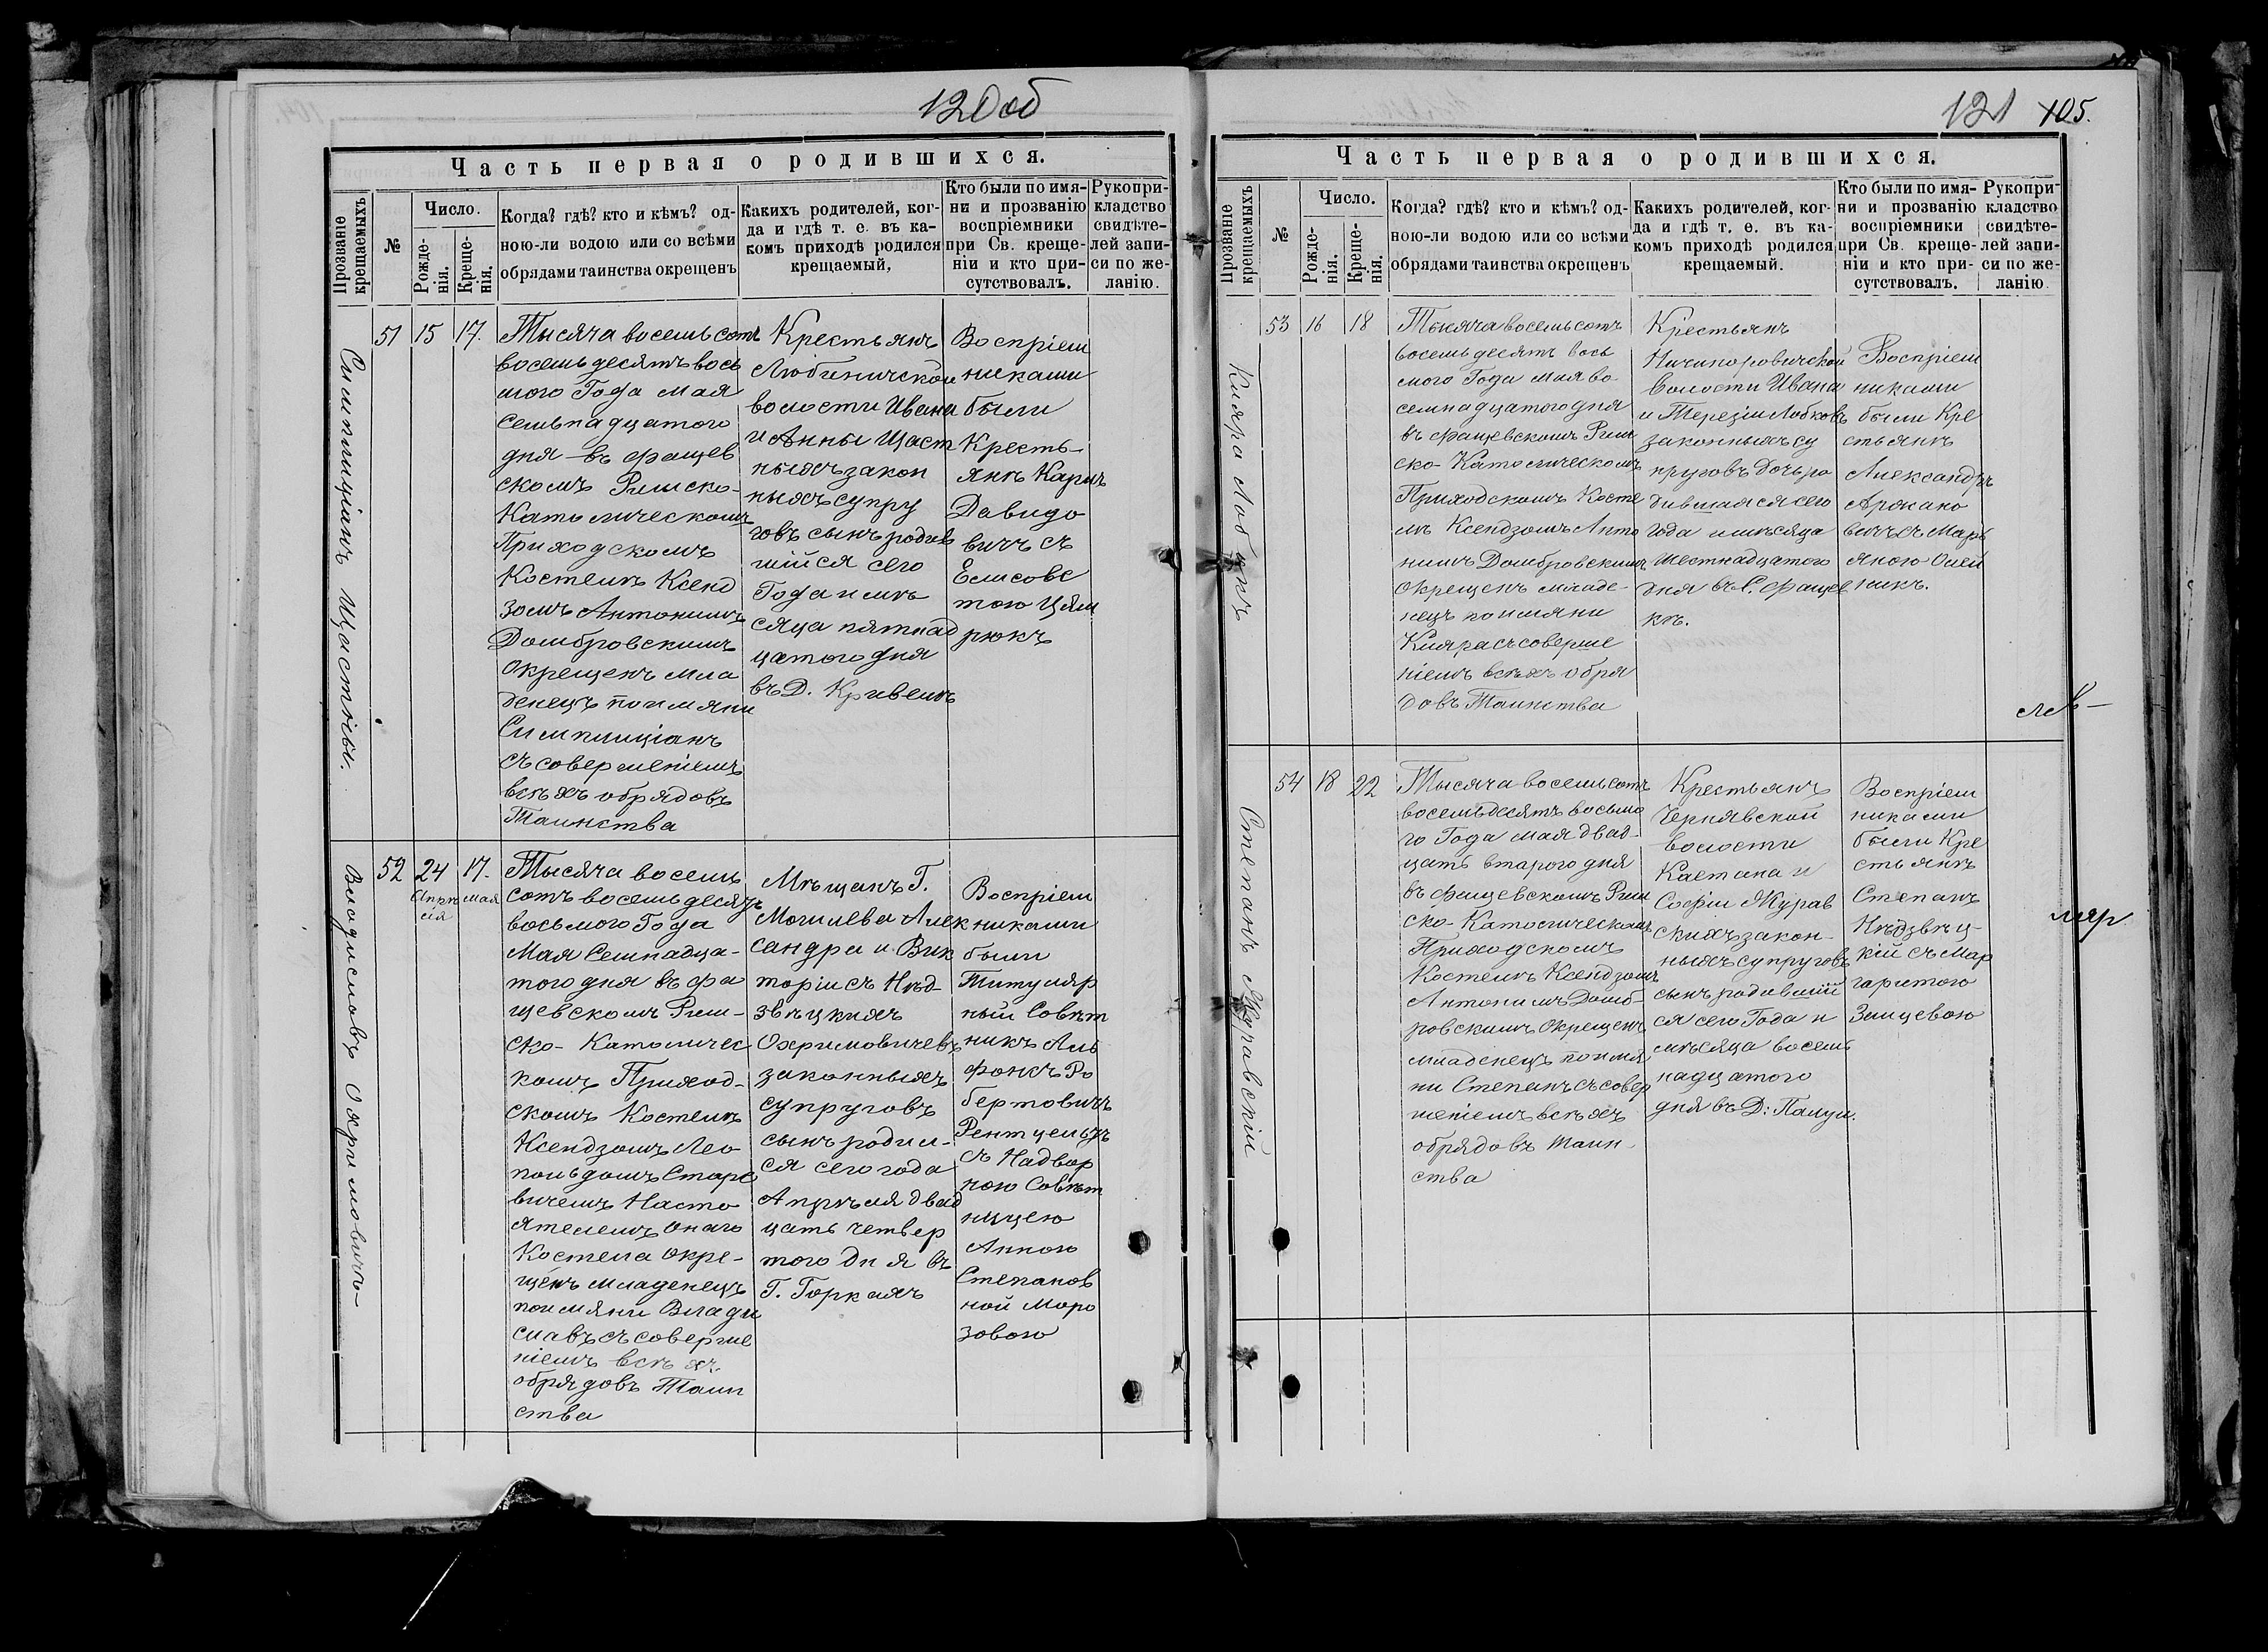 120 об
Часть первая о родившихся.
Прозваніе крещаемыхъ
№
Число.
Рожде-
нія.
Креще-
нія.
Когда? гдѣ? кто и кѣмъ? од-
ною-ли водою или со всѣми
обрядами таинства окрещенъ
Какихъ родителей, ког-
да и гдѣ т. е. въ ка-
комъ приходѣ родился
крещаемый,
Кто были по имя-
ни и прозванію
воспріемники
при Св. креще-
ніи и кто при-
сутствовалъ.
Рукопри-
кладство
свидѣте-
лей запи-
си по же-
ланію.
Симплиціанъ Щастный.
51 15 17.
Тысяча восемьсотъ
восемьдесятъ вось
мого Года мая
семьнадцатого
дня въ Фащев
скомъ Римско-
Католическомъ
Приходскомъ
Костелѣ Ксенд
зомъ Антонимъ
Домбровскимъ
Окрещенъ мла
денецъ по имяни
Симплиціанъ
съ совершеніемъ
всѣхъ обрядовъ
Таинства
Крестьянъ
Любиничской
волости Ивана
и Анны Щаст
ныхъ закон
ныхъ супру
говъ сынъ родив
шійся сего
Года и мѣ
сяца пятнад
цатого дня
въ Д. Кривелѣ
Воспріем
никами
были
Кресть-
янъ Карлъ
Давидо
вичъ съ
Елисаве
тою Цям
рюкъ
Владиславъ Охримовичъ
52 24 17.
Апрѣ
ля
мая
Тысяча восемь
сотъ восемьдесятъ
восьмого Года
Мая Семнадца-
того дня въ Фа
щевскомъ Рим-
ско- Католичес
комъ Приход-
скомъ Костелѣ
Ксендзомъ Лео
польдомъ Старе
вичемъ Насто
ятелемъ Онаго
Костела Окре-
щенъ младенецъ
по имяни Влади
славъ съ соверше
ніемъ всѣхъ
обрядовъ Таин
ства
Мѣщанъ Г.
Могилева Алек
сандра и Вик
торіи съ Нѣд-
звѣцкихъ
Охримовичевъ
законныхъ
супруговъ
сынъ родил-
ся сего года
Апрѣля двад
цать четвер
того дня въ
Г. Горкахъ
Воспріем
никами
были
Титуляр
ный Совѣт
никъ Аль
фонсъ Ро
бертовичъ
Рентцельдъ
съ Надвор
ною Совѣт
ницею
Анною
Степанов
ной Моро
зовою
121 105.
Часть первая о родившихся.
Прозваніе крещаемыхъ
№
Число.
Рожде-
нія.
Креще-
нія.
Когда? гдѣ? кто и кѣмъ? од-
ною-ли водою или со всѣми
обрядами таинства окрещенъ
Какихъ родителей, ког-
да и гдѣ т. е. въ ка-
комъ приходѣ родился
крещаемый.
Кто были по имя-
ни и прозванію
воспріемники
при Св. креще-
ніи и кто при-
сутствовалъ.
Рукопри-
кладство
свидѣте-
лей запи-
си по же-
ланію.
Кляра Лобакъ
53 16 18
Тысяча восемьсотъ
восемьдесятъ вось
мого Года мая во
семнадцатого дня
въ Фащевскомъ Рим
ско- Католическомъ
Приходскомъ Косте
лѣ Ксендзомъ Анто
нимъ Домбровскимъ
Окрещенъ младе-
нецъ по имяни
Кляра съ соверше
ніемъ всѣхъ обря
довъ Таинства
Крестьянъ
Ничипоровичской
Волости Ивана
и Терезіи Лобковъ
законныхъ су
пруговъ дочь ро
дившаяся сего
Года и мѣсяца
Шестнадцатого
дня въ С. Фащев
кѣ.
Воспріем
никами
были Кре
стьянъ
Александръ
Аржано
вичъ съ Марь
яною Олей
никъ.
Степанъ Журавскій
54 18 22
Тысяча восемьсотъ
восемьдесятъ восьмо
го Года мая двад-
цать второго дня
въ Фащевскомъ Рим
ско-Католическомъ
Приходскомъ
Костелѣ Ксендзомъ
Антонимъ Домб-
ровскимъ Окрещенъ
младенецъ по имя
ни Степанъ съ совер
шеніемъ всѣхъ
обрядовъ Таин-
ства
Крестьянъ
Чернявской
волости
Каетана и
Софіи Журав
скихъ закон-
ныхъ супруговъ
сынъ родившій
ся сего Года и
мѣсяца восемь
надцатого
дня въ Д:
Воспріем
никами
были Кре
стьянъ
Степанъ
Нѣдзвѣц-
кій съ Мар
гаритою
Зайцевою